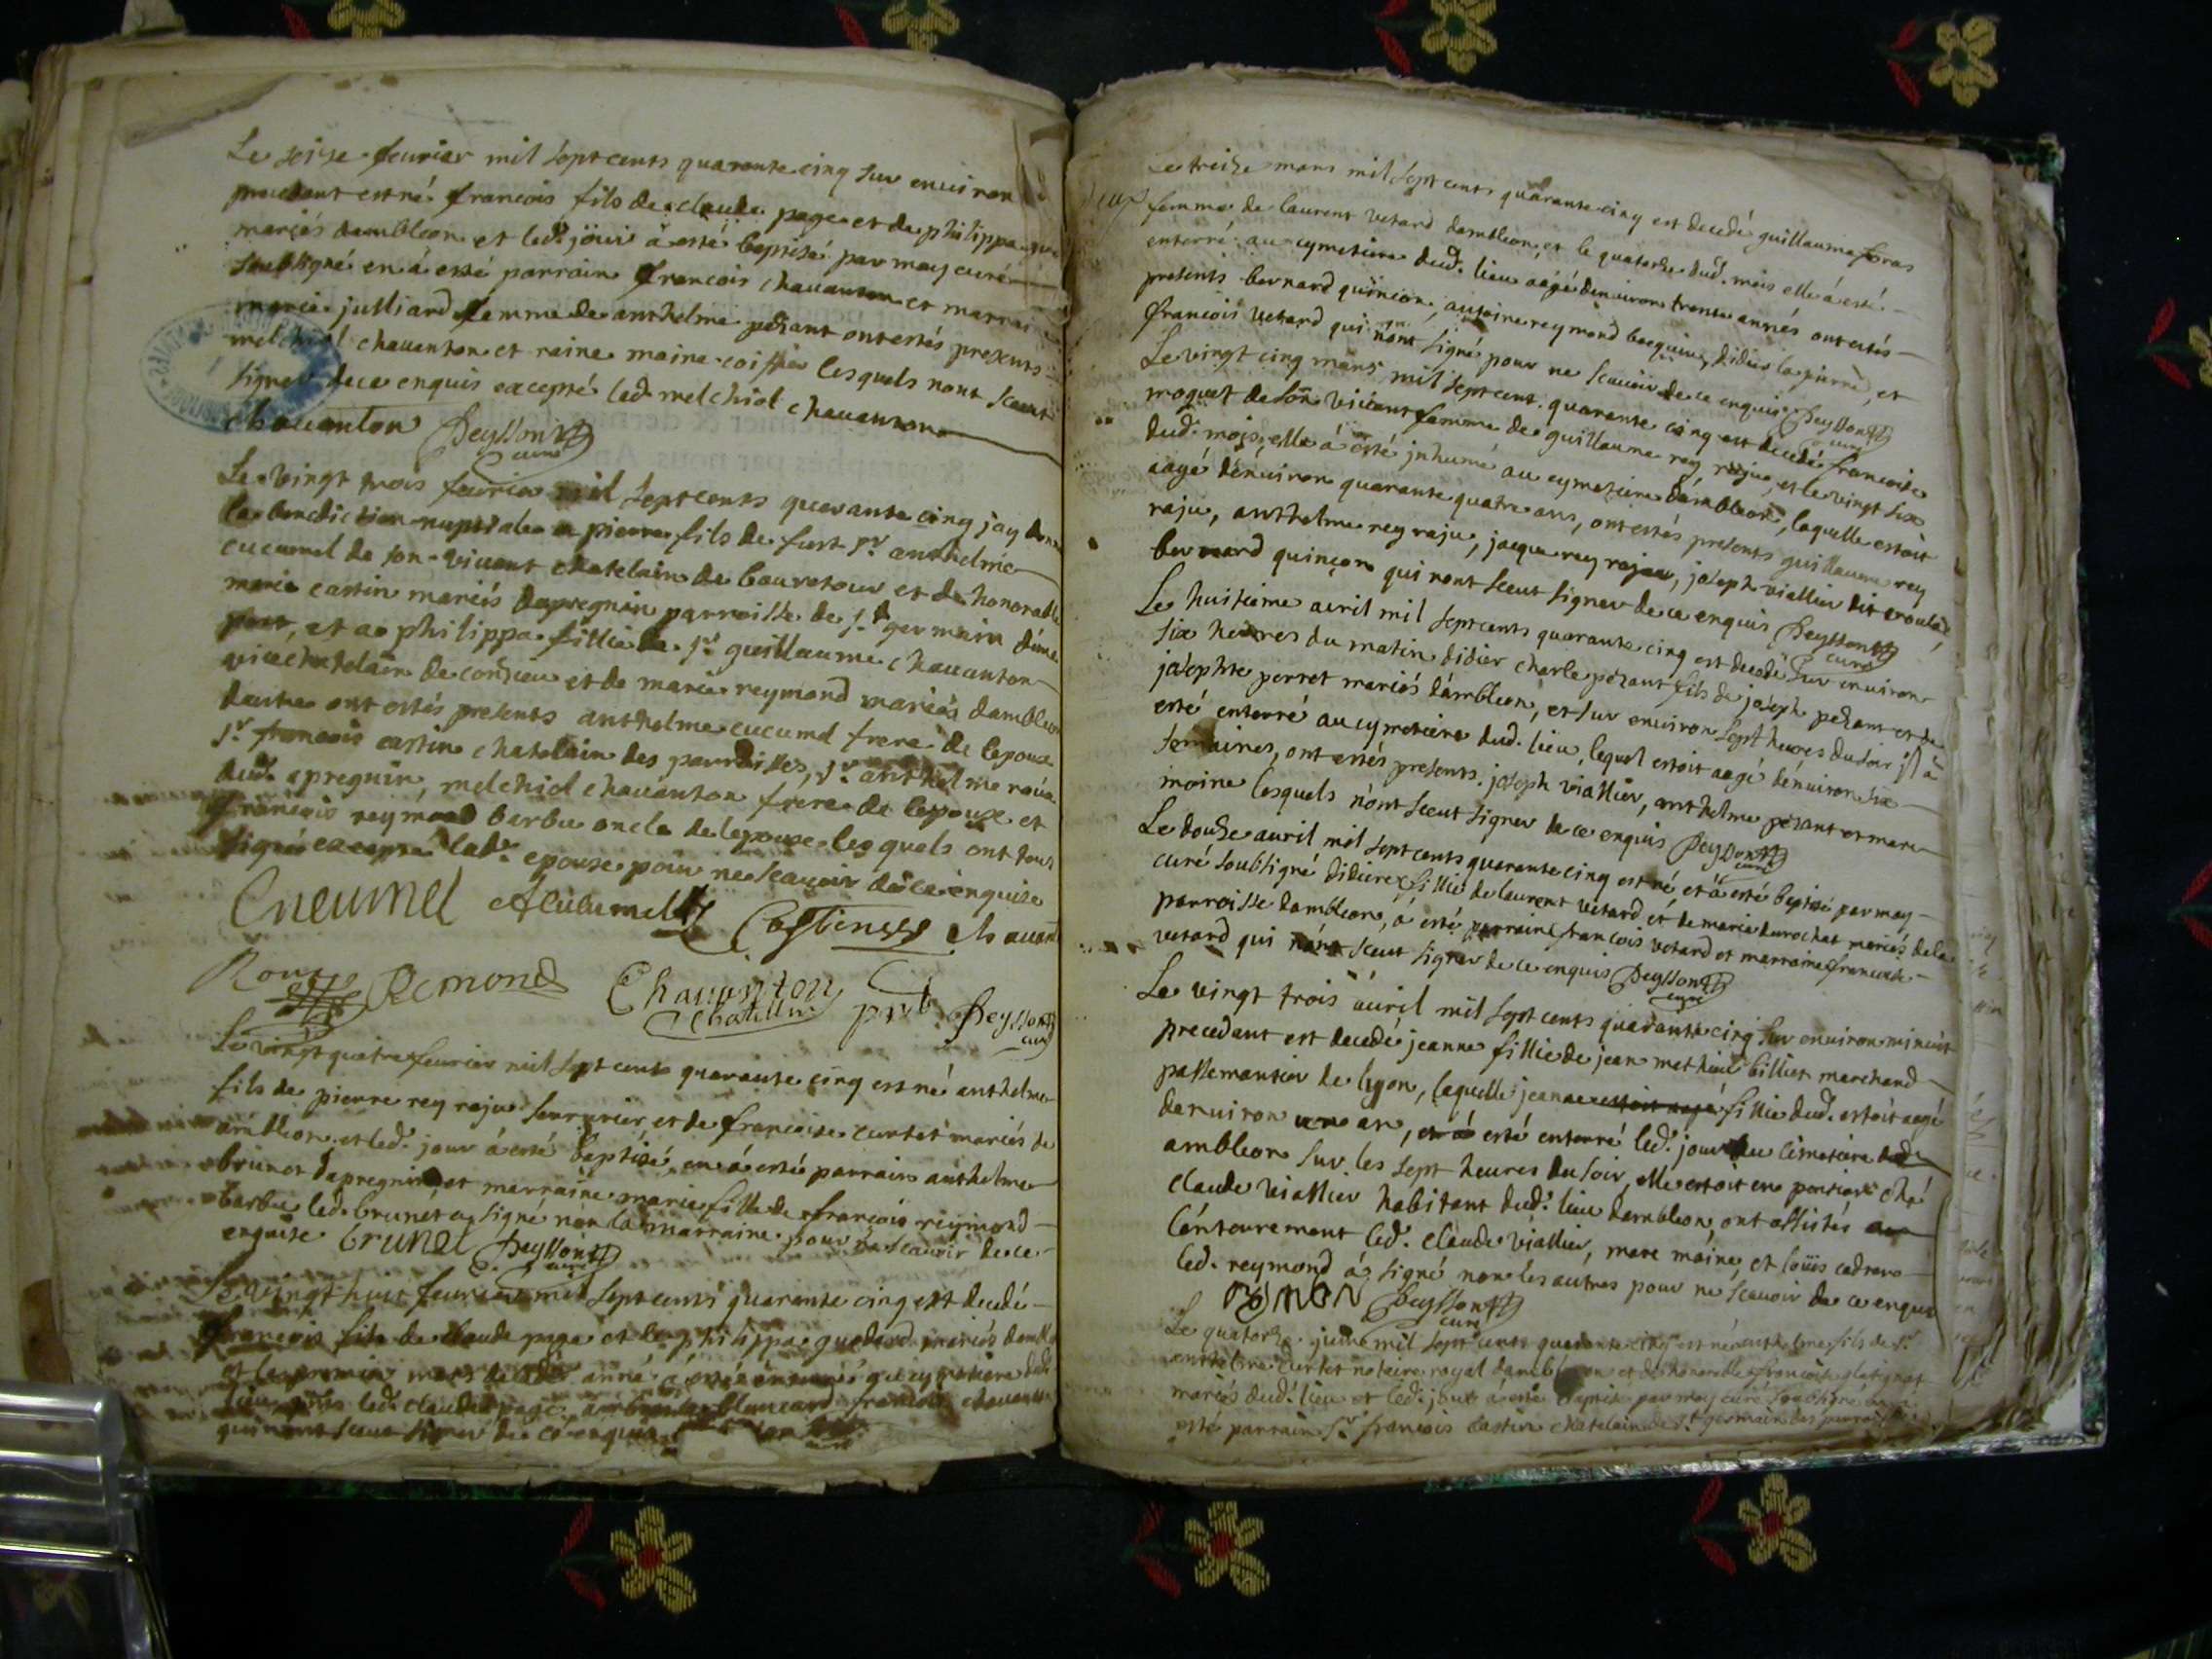 Le seise feurier mil sept cents quarante cinq sur enuiron
precedant est né francois fils de claude page et de philippa
mariés dambleon et led. jour à esté baptisé par moy curé
soubsigné en à esté parrain francois chauanton et marrai
marie julliard femme de anthelme pezant ont estés presents
melchiol chauanton et raine maine lesquels nont sceut
signer de ce enquis excepté led. melchiol chauanton
chauanton Deysson
curé
Le vingt trois feurier mil sept cents quarante cinq jay donn
la benediction nuptiale a pierre fils de fust sr. anthelme
cucumel de son viuant chatelain de bauretour et de honorable
marie castin mariés depregnin parroisse de st. germain
et a philippa fillie de sr. guillaume chauanton
vicechatelain de conzieu et de marie reymond mariés dambleon
dautre ont estés presents anthelme cucumel frere de lepoux
sr. francois castin chatelain des parroisses, sr. anthelme
dud. apregnin, melchiol chauanton frere de lepouse et
francois reymond barbu oncle de lepouse lesquels ont tous
signé excepté lad. epouse pour ne scauoir de ce enquise
Cucumel ACucumel Castin chauant
Roux Remond Chauanton
Chatellin Deysson
curé
Le vingt quatre feurier mil sept cents quarante cinq est né anthelme
fils de pierre rey raju serrurier et de francoise curtet mariés de
ambleon et led. jour à esté baptisé, en à esté parrain anthelme
brunet dapregnin, et marraine marie fille de francois reymond
barbu led. brunet a signé non la marraine pour ne scauoir de ce
enquise brunet Deysson
curé
Le vingt huit feurier mil sept cents quarante cinq est decedé
francois fils de claude page et de philippa mariés dambl
et le premier mars de anné à esté enterré au cymetiere dud.
lieu led. claude page, blancard francois chauanton
qui nont sceut signer de ce enquis
curé
Le treize mars mil sept cents quarante cinq est decedé guillauma foras
femme de laurent vetard dambleon, et le quatorze dud. mois elle à esté
enterré au cymetiere dud. lieu aagé denuiron trente annés ont estés
presents bernard quinson, antoine reymond bequin, didier lapierre, et
francois vetard qui nont signé pour ne scauoir de ce enquis Deysson
curé
Le vingt cinq mars mil sept cent quarante cinq est decedé francoise
moguet de son viuant femme de guillaume rey raju, et le vingt six
dud. mois, elle à esté inhumé au cymetiere dambleon, laquelle estoit
aagé denuiron quarante quatre ans, ont estés presents guillaume rey
raju, anthelme rey raju, jacque rey raju, joseph viallier dit
bernard quinçon qui nont sceut signer de ce enquis Deysson
curé
Le huitieme auril mil sept cents quarante cinq est decedé sur enuiron
six heures du matin didier charle pezant fils de joseph pezant et de
josephte perret mariés dambleon, et sur enuiron sept heures du soir il à
esté enterré au cymetiere dud. lieu, lequel estoit aagé denuiron six
semaines, ont estés presents joseph viallier, anthelme pezant et marc
moine lesquels nont sceut signer de ce enquis Deysson
curé
Le douze auril mil sept cents quarante cinq est né et à esté baptisé par moy
curé soubsigné didiere fillie de laurent vetard et de marie durochat mariés de la
parroisse dambleon, à esté parrain francois vetard et marraine francoise
vetard qui nont sceut signer de ce enquis Deysson
curé
Le vingt trois auril mil sept cents quarante cinq sur enuiron minuit
precedant est decedé jeanne fillie de jean methieu billiet marchand
passemantier de lyon, laquelle jeanne estoit aagé fillie dud. estoit aagé
denuiron un an, et à esté enterré led. jour au cimetiere dud
ambleon sur les sept heures du soir, elle estoit en pention ché
claude viallier habitant dud. lieu dambleon, ont assistés au
lenterrement led. claude viallier, marc moine, et loüis
led. reymond à signé non les autres pour ne scauoir de ce enquis
Deysson
curé
Le quatorze juin mil sept cents quarante cinq est né anthelme fils de sr.
anthelme curtet notaire royal dambleon et de honorable francoise
mariés dud. lieu et led. jour à esté baptisé par moy curé soubsigné
esté parrain sr. francois castin chatelain de st. germain des parroisses